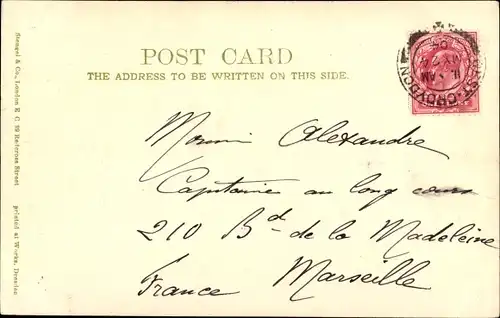 POST CARD
THE ADDRESS TO BE WRITTEN ON THIS SIDE.
Stengel & Co., London E. C. 39 Redcross Street printed at Works, Dresden
CROYDON
11 AM
MY 2
04
Alexandre
Capitaine au long cours
210 Bd de la Madeleine
Marseille
France